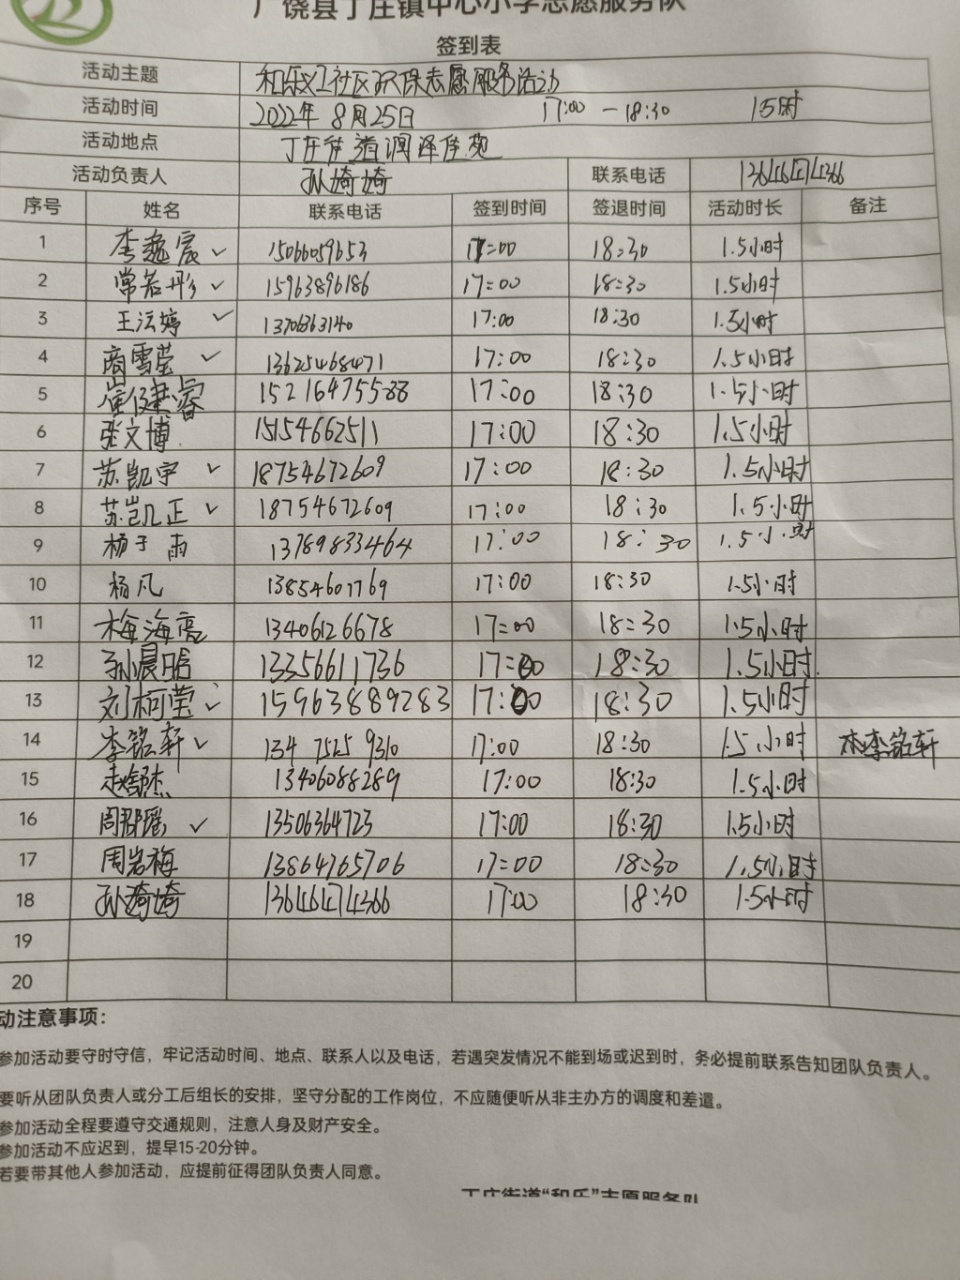 广饶县丁庄镇中心小学志愿服务队
签到表
活动主题 和乐红社区环保志愿服务活动
活动时间 2022年8月25日 17:00-18:30 1.5时
活动地点 丁庄街道润泽佳苑
活动负责人 孙崎崎 联系电话 13646474366
序号 姓名 联系电话 签到时间 签退时间 活动时长 备注
1 李 宸 ✓ 15066059653 17:00 18:30 1.5小时
2 常若彤 ✓ 15963896186 17:00 18:30 1.5小时
3 王法婷 ✓ 13706363140 17:00 18:30 1.5小时
4 商雪莹 ✓ 13625468471 17:00 18:30 1.5小时
5 崔健睿 15216475588 17:00 18:30 1.5小时
6 张文博 15154662511 17:00 18:30 1.5小时
7 苏凯宇 ✓ 18754672609 17:00 18:30 1.5小时
8 苏凯正 ✓ 18754672609 17:00 18:30 1.5小时
9 杨于雨 13789833464 17:00 18:30 1.5小时
10 杨凡 13854601769 17:00 18:30 1.5小时
11 梅海亮 13406126678 17:00 18:30 1.5小时
12 孙晨皓 13356611736 17:00 18:30 1.5小时
13 刘柯莹 ✓ 15963889283 17:00 18:30 1.5小时
14 李铭轩 ✓ 134 7525 9310 17:00 18:30 1.5小时 李铭轩
15 赵 杰 13406088289 17:00 18:30 1.5小时
16 周郡瑶 ✓ 13506364723 17:00 18:30 1.5小时
17 周岩梅 13864765706 17:00 18:30 1.5小时
18 孙崎崎 13646474366 17:00 18:30 1.5小时
19
20
动注意事项：
参加活动要守时守信，牢记活动时间、地点、联系人以及电话，若遇突发情况不能到场或迟到时，务必提前联系告知团队负责人。
要听从团队负责人或分工后组长的安排，坚守分配的工作岗位，不应随便听从非主办方的调度和差遣。
参加活动全程要遵守交通规则，注意人身及财产安全。
参加活动不应迟到，提早15-20分钟。
若要带其他人参加活动，应提前征得团队负责人同意。
丁庄街道“和乐”志愿服务队